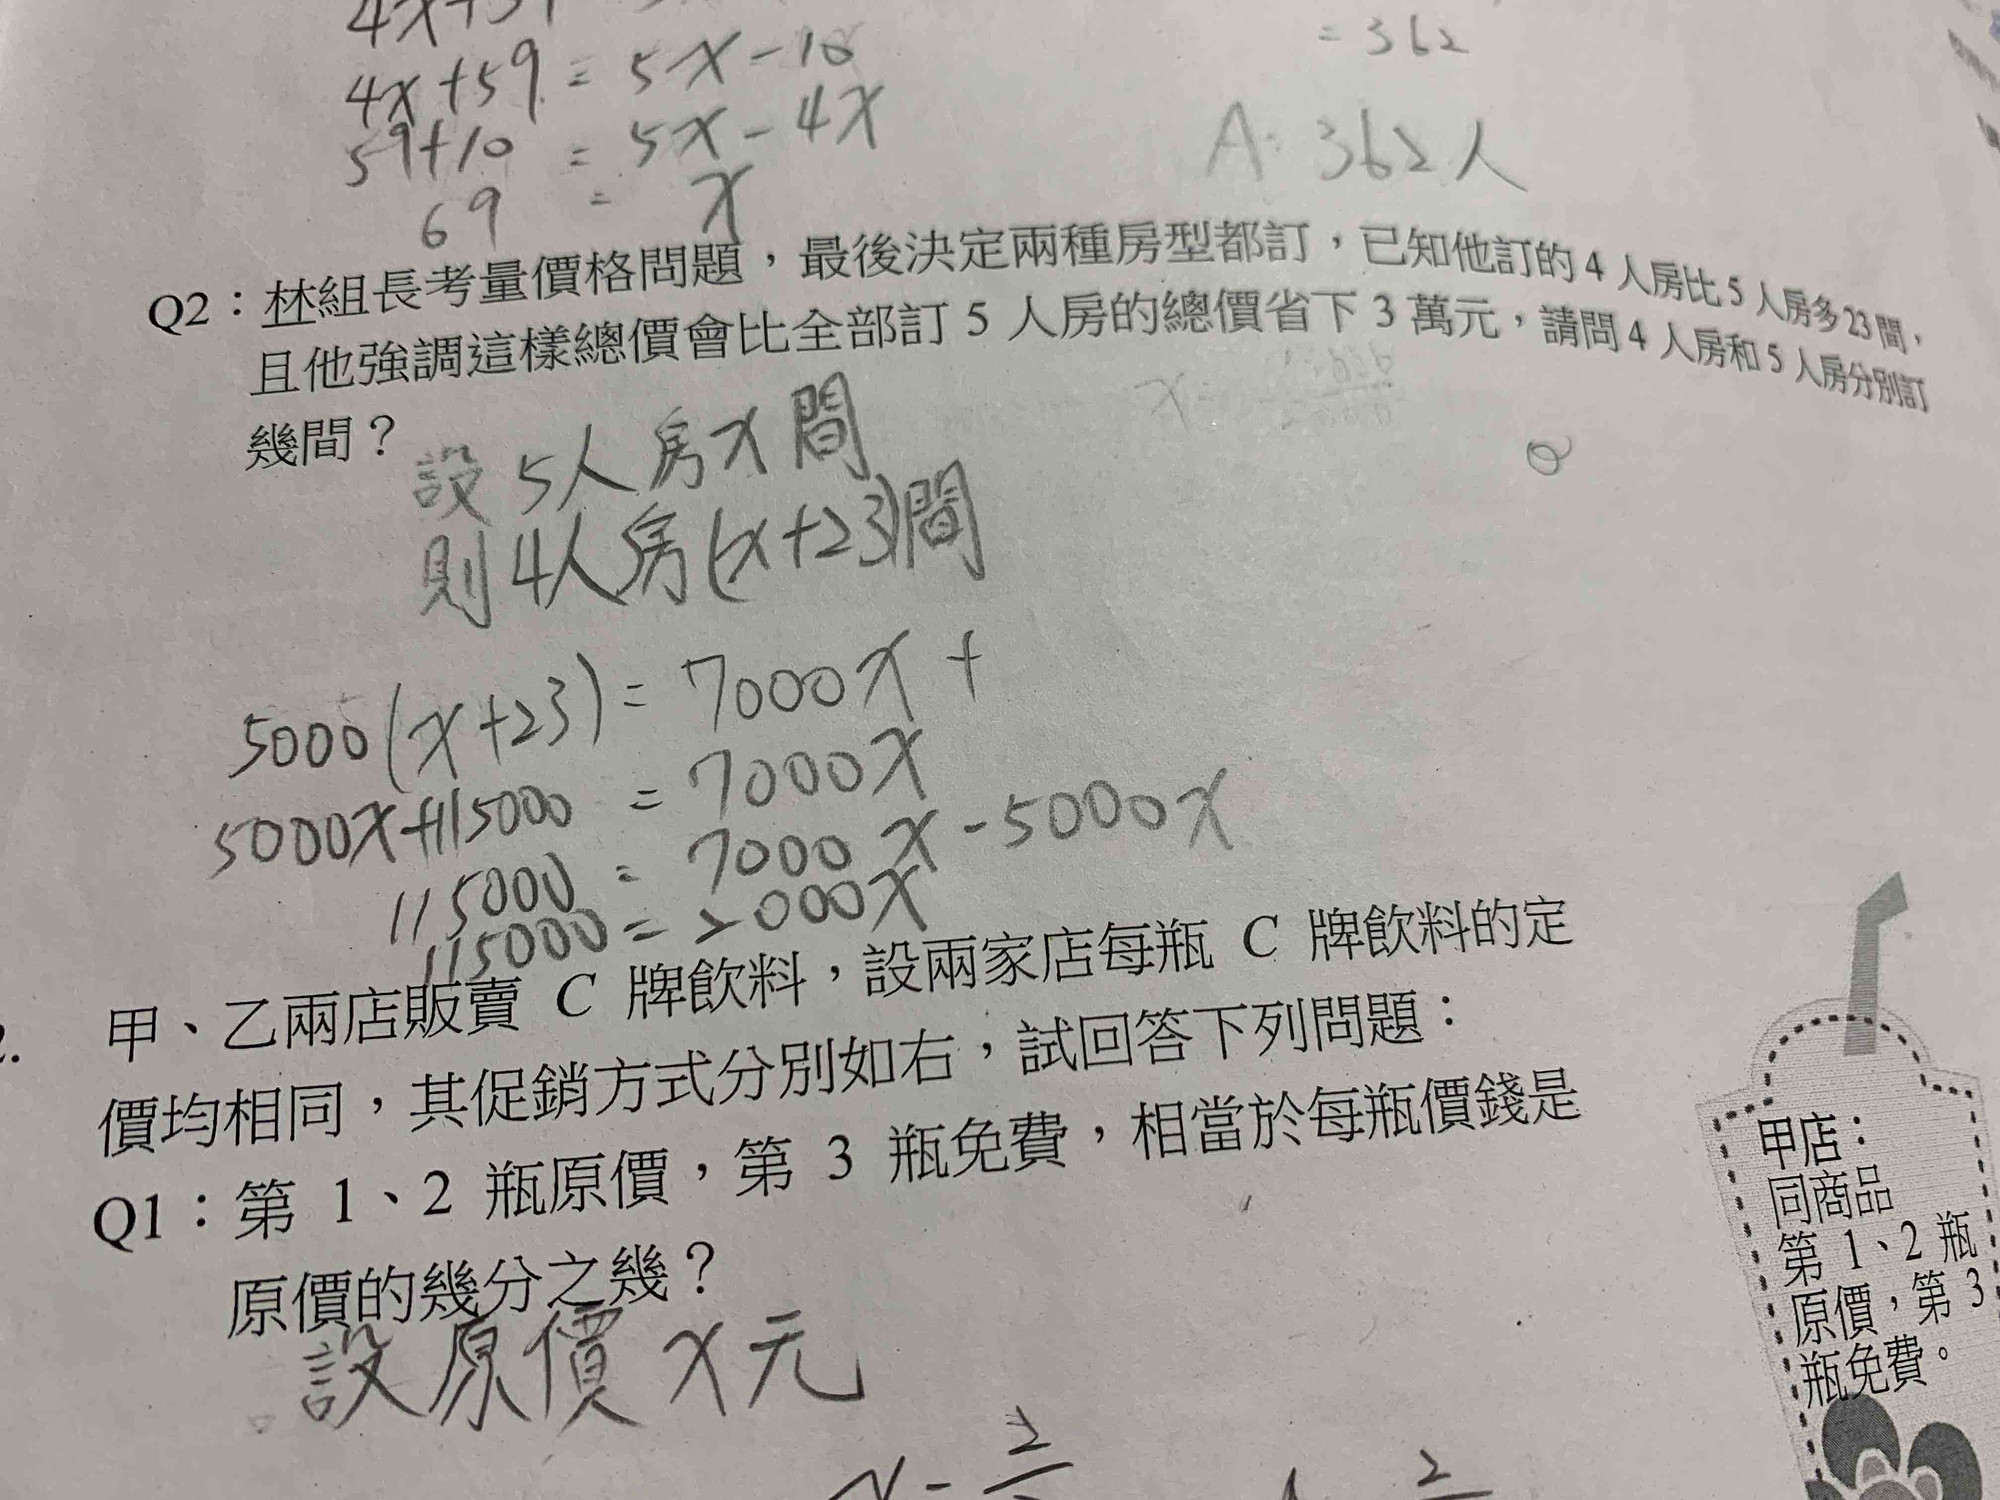 4x+59 = 5x-10
59+10 = 5x-4x
69 = x
=362
A: 362人
Q2：林組長考量價格問題，最後決定兩種房型都訂，已知他訂的4人房比5人房多23間，
且他強調這樣總價會比全部訂5人房的總價省下3萬元，請問4人房和5人房分別訂
幾間？
設5人房x間
則4人房(x+23)間
5000(x+23)=7000x+
5000x+115000=7000x
115000=7000x-5000x
115000=2000x
2. 甲、乙兩店販賣C牌飲料，設兩家店每瓶C牌飲料的定
價均相同，其促銷方式分別如右，試回答下列問題：
Q1：第1、2瓶原價，第3瓶免費，相當於每瓶價錢是
原價的幾分之幾？
設原價x元
甲店：
同商品
第1、2瓶
原價，第3
瓶免費。